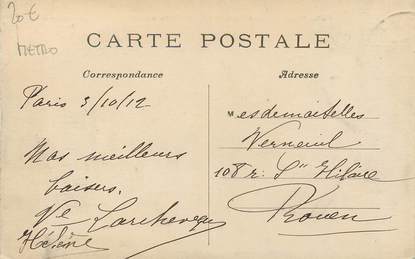 20€
METRO
CARTE POSTALE
Correspondance
Adresse
Paris 3/10/12
Mes meilleurs
baisers.
Ve Larcheveque
Hélène
Mesdemoiselles
Verneuil
108 r. St Hilaire
Rouen